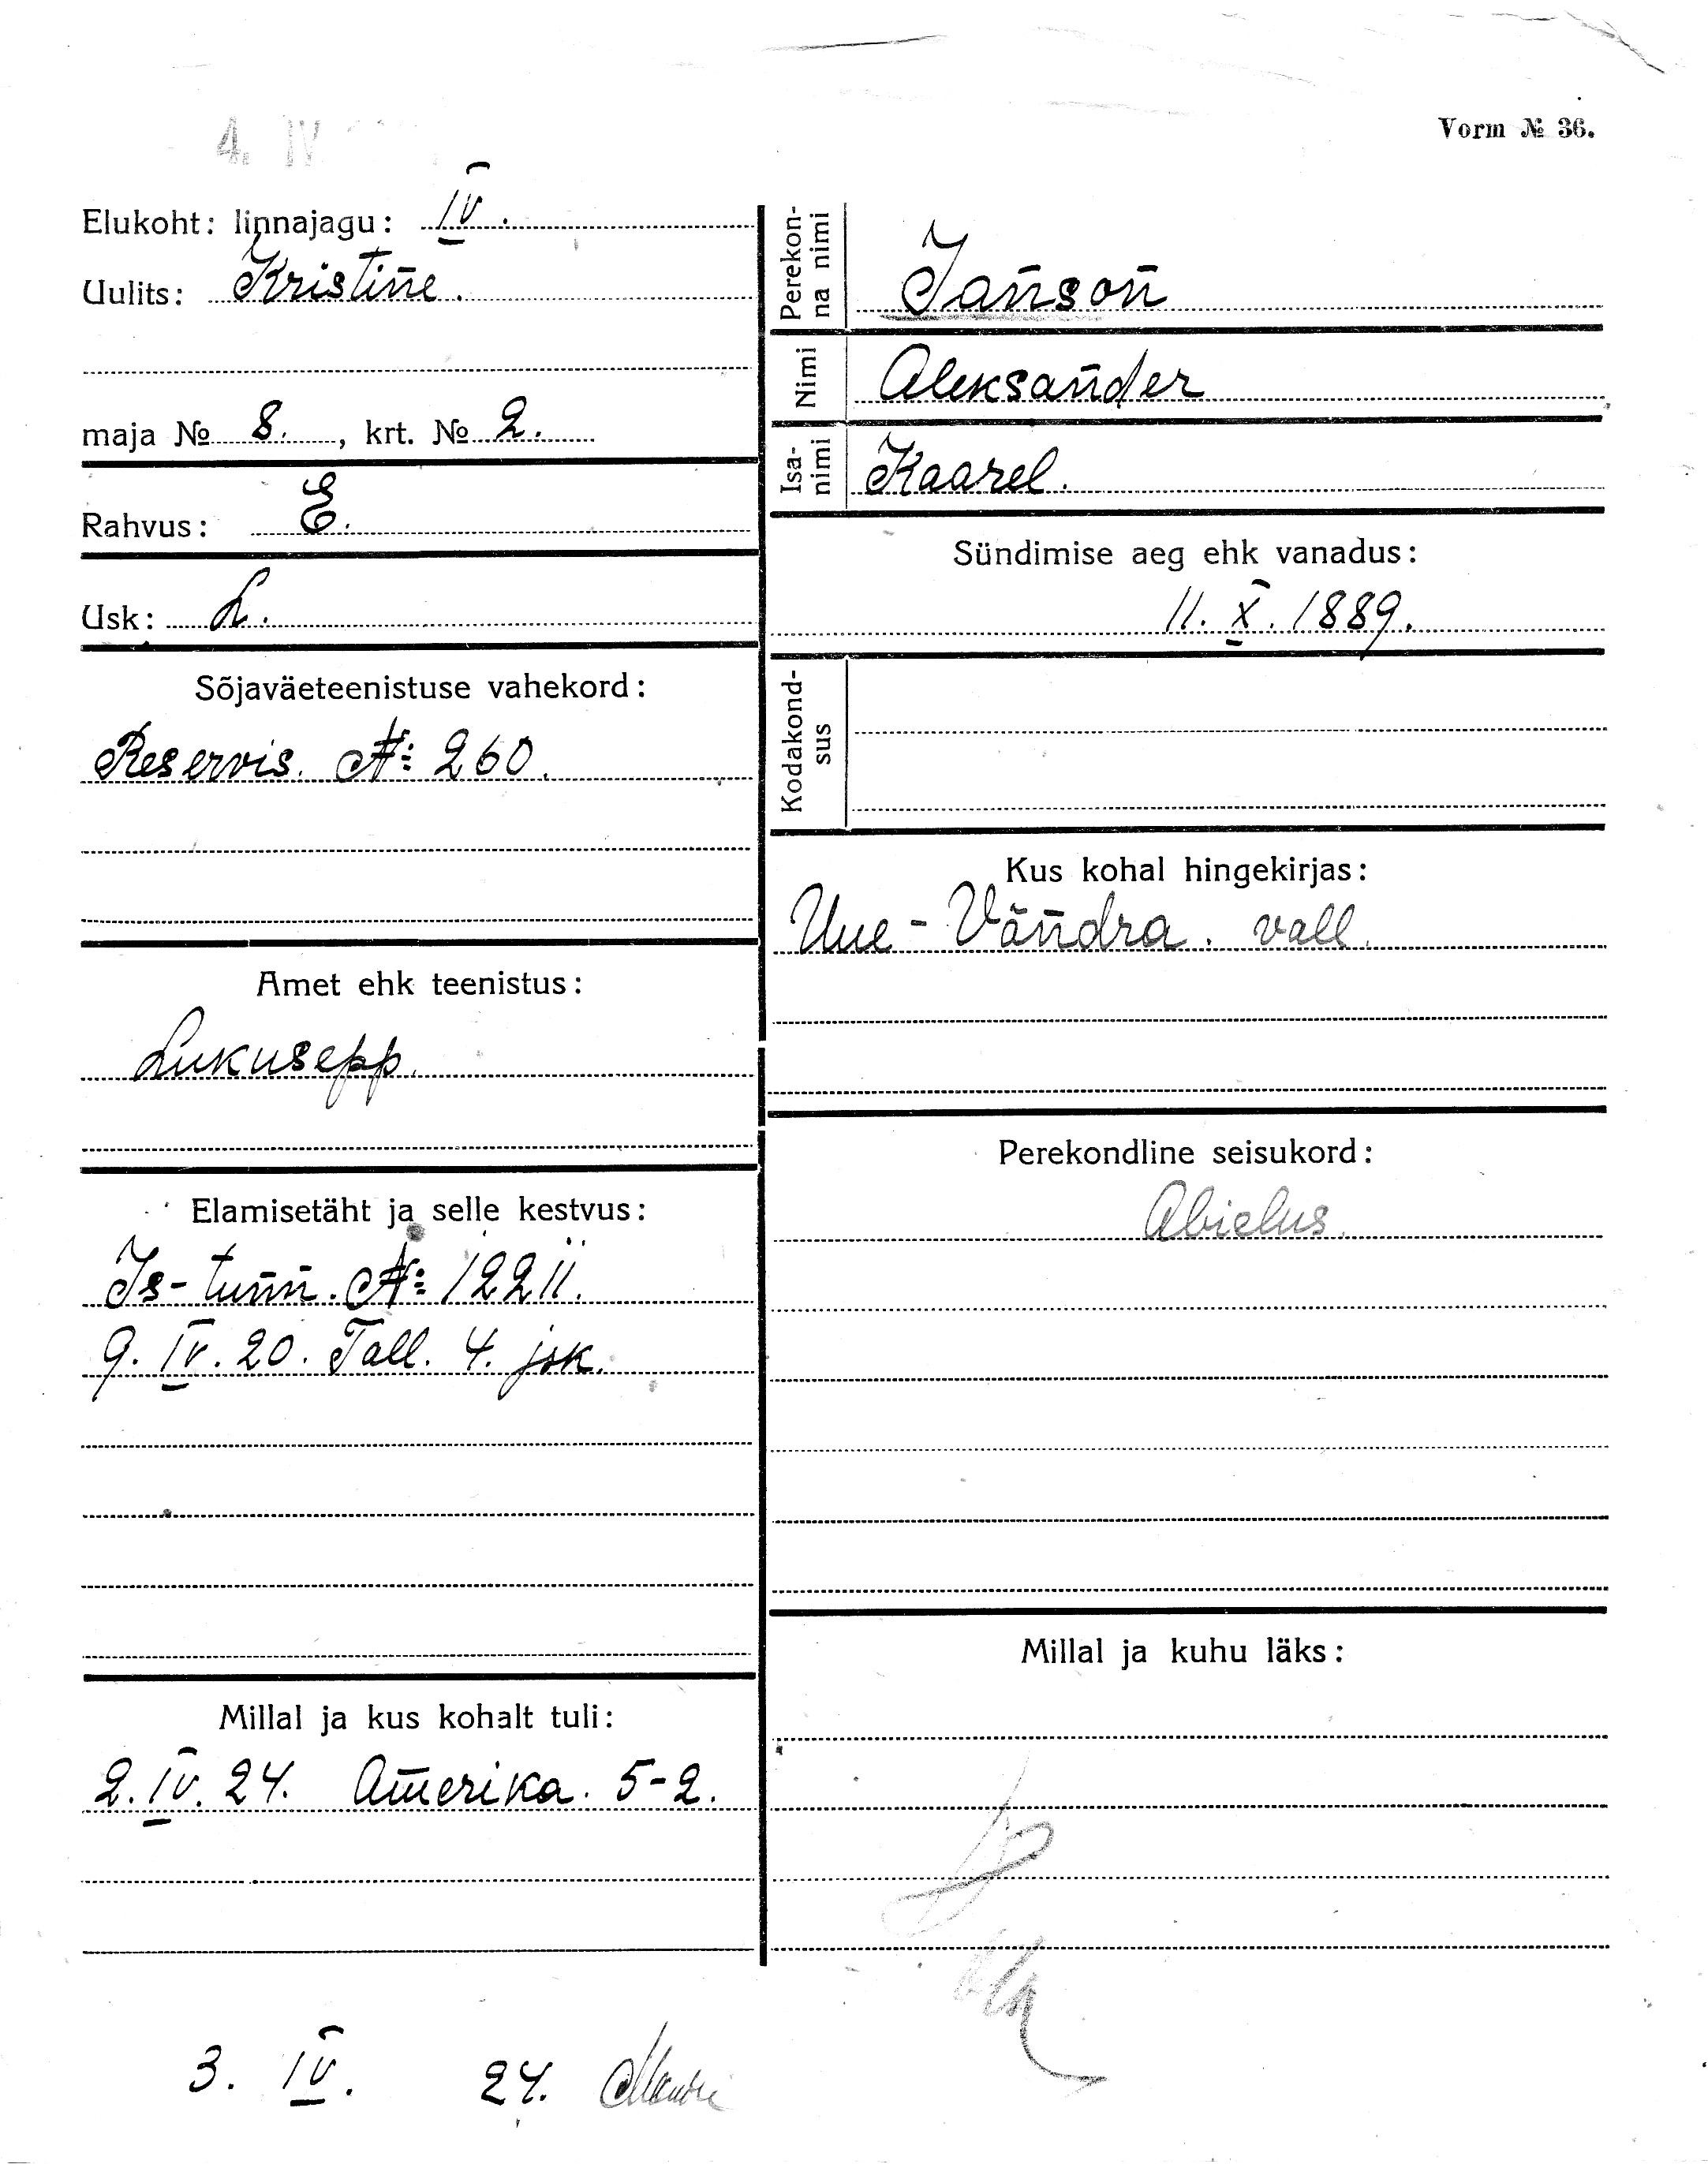 4. IV
Vorm № 36.
Elukoht: linnajagu: IV.
Uulits: Kristine.
maja № 8., krt. № 2.
Rahvus: E.
Usk: L.
Sõjaväeteenistuse vahekord:
Reservis. №: 260.
Amet ehk teenistus:
Lukusepp.
Elamisetäht ja selle kestvus:
Is-tunn. №: 12211.
9. IV. 20. Tall. 4. jsk.
Millal ja kus kohalt tuli:
2. IV. 24. Amerika. 5-2.
Perekon-
na nimi
Janson
Nimi
Aleksander
Isa-
nimi
Kaarel.
Sündimise aeg ehk vanadus:
11. X. 1889.
Kodakond-
sus
Kus kohal hingekirjas:
Uue-Vändra. vall.
Perekondline seisukord:
Abielus.
Millal ja kuhu läks:
3. IV. 24.